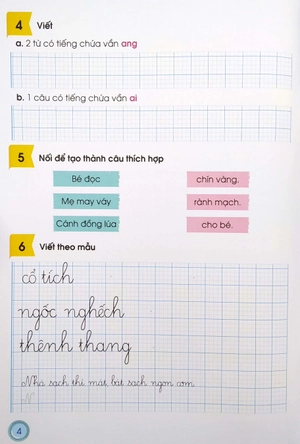 4 Viết
a. 2 từ có tiếng chứa vần ang
b. 1 câu có tiếng chứa vần ai
5 Nối để tạo thành câu thích hợp
Bé đọc chín vàng.
Mẹ may váy rành mạch.
Cánh đồng lúa cho bé.
6 Viết theo mẫu
cổ tích
ngốc nghếch
thênh thang
Nhà sạch thì mát, bát sạch ngon cơm.
N
4